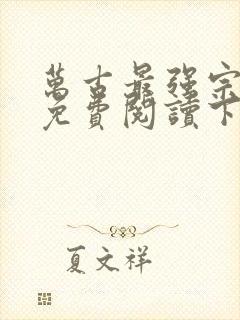 萬古最強宗
免費閱讀下
夏文祥